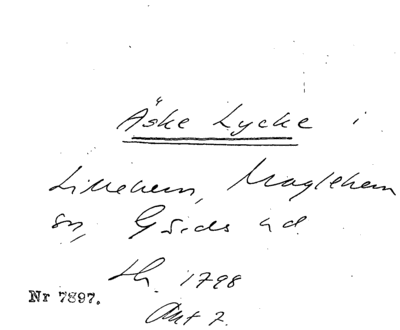 Äske Lycke i
Lillehem, Maglehem
sn, Gärds hd.
Lh. 1798
Nr 7897.
Akt 7.